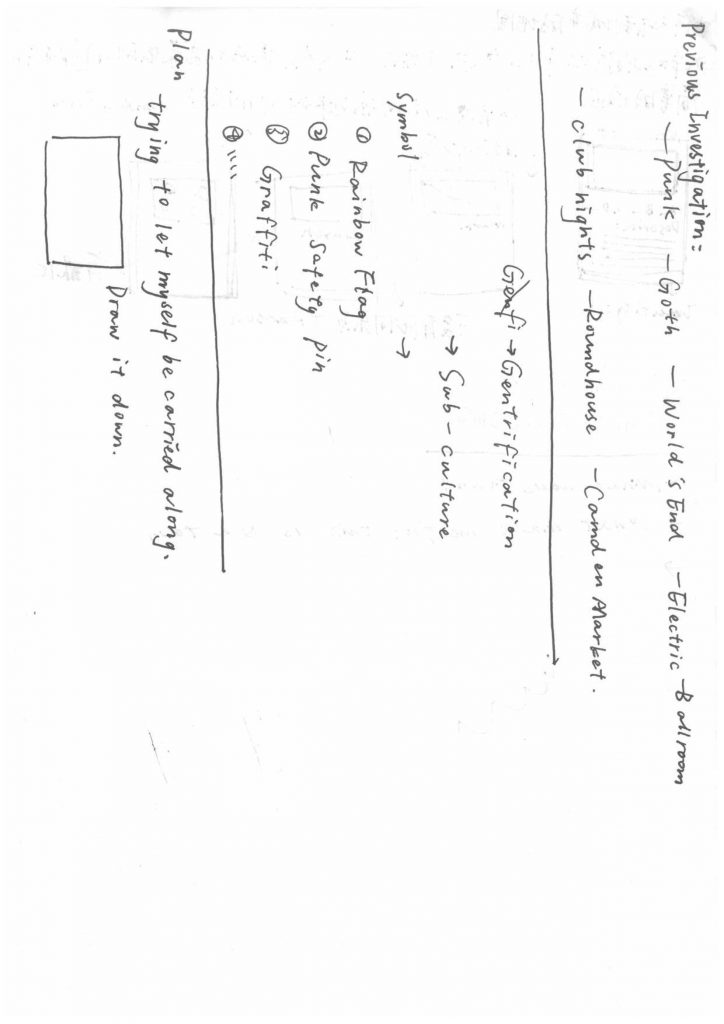 Previous Investigation:
— Punk — Goth — World's End — Electric Ballroom
— club nights — Roundhouse — Camden Market.
Genfi → Gentrification
→ Sub-culture
Symbol →
① Rainbow Flag
② Punk Safety pin
③ Graffiti
④
Plan trying to let myself be carried along.
Draw it down.